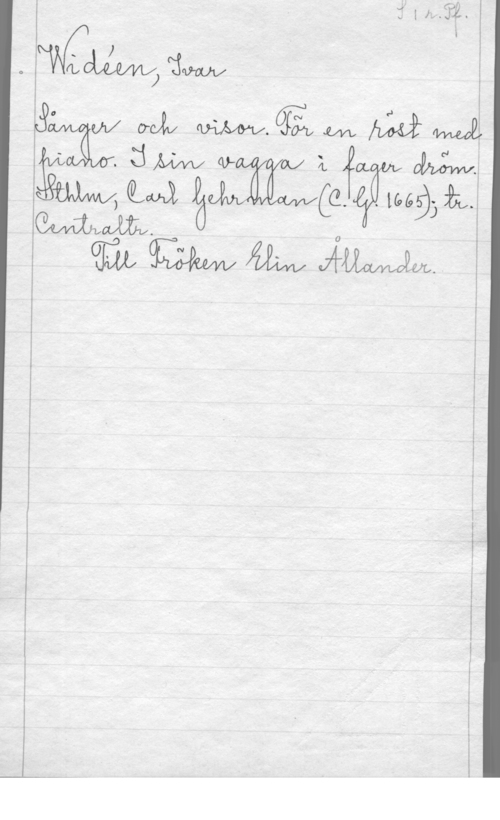 S 1 r. Pf.
Widéen, Ivar
Sånger och visor. För en röst med
piano. I sin vagga i fager dröm.
Sthlm, Carl Gehrman (C. G. 1665); tr.
Centraltr.
Till Fröken Elin Ållander.